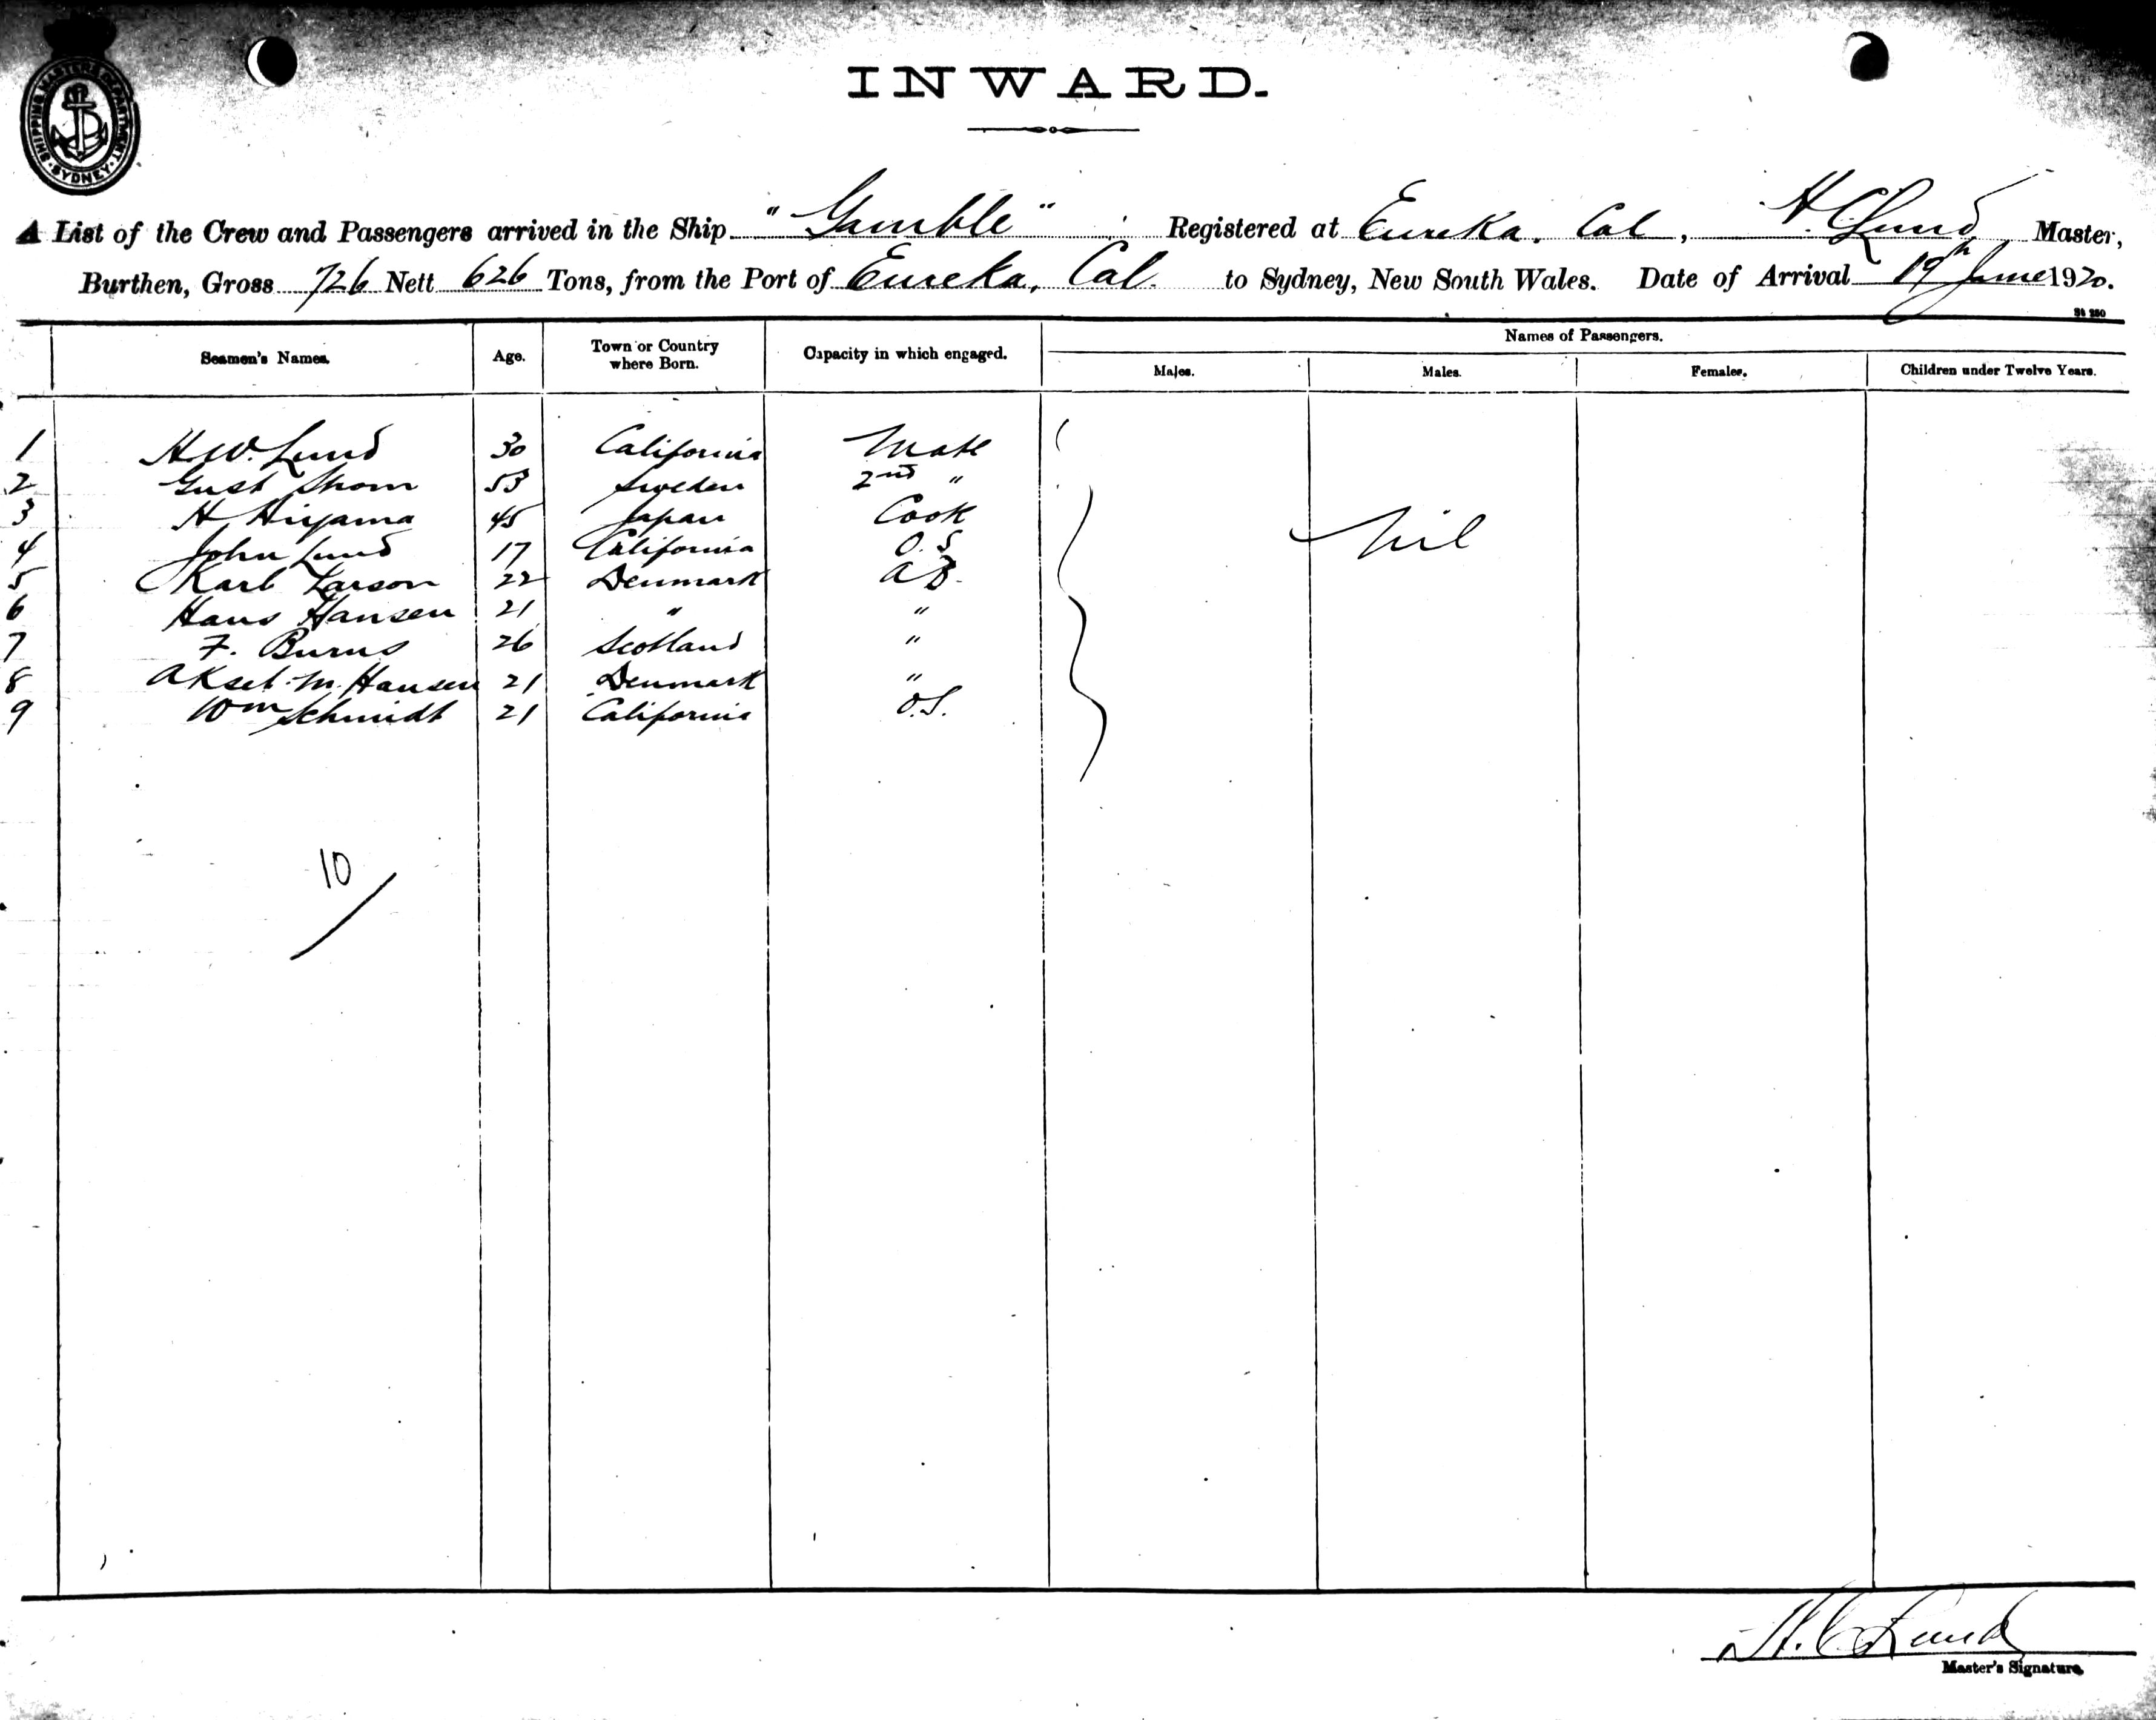 SHIPPING MASTERS DEPARTMENT SYDNEY
INWARD.
A List of the Crew and Passengers arrived in the Ship "Gamble" Registered at Eureka. Cal, H. C. Lund Master,
Burthen, Gross 726 Nett 626 Tons, from the Port of Eureka, Cal. to Sydney, New South Wales. Date of Arrival 19th June 1920.
Names of Passengers.
Seamen's Names. Age. Town or Country where Born. Capacity in which engaged. Males. Males. Females. Children under Twelve Years.
1 H.W. Lund 30 California Mate
2 Gust Strom 53 Sweden 2nd "
3 H Hiyama 45 Japan Cook
Nil
4 John Lund 17 California O.S
5 Karl Larson 22 Denmark A B.
6 Hans Hansen 21 " "
7 F. Burns 26 Scotland "
8 Aksel. M. Hansen 21 Denmark "
9 Wm Schmidt 21 California O.S.
10
H. C. Lund
Master's Signature